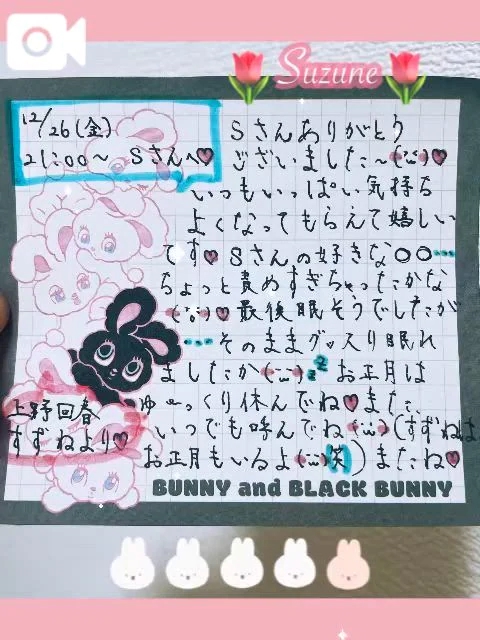 Suzune
12/26(金)
21:00〜 Sさんへ♥
Sさんありがとう
ございました〜(¨̮)♥
いつもいっぱい気持ち
よくなってもらえて嬉しい
です♥ Sさんの好きな〇〇…
ちょっと責めすぎちゃったかな
(¨̮)♥最後眠そうでしたが
…そのままグッスり眠れ
ましたか(¨̮)zz お正月は
ゆ〜っくり休んでね♥また
いつでも呼んでね(¨̮)(すずねは
お正月もいるよ(¨̮)笑)またね♥
上野回春
すずねより♥
BUNNY and BLACK BUNNY